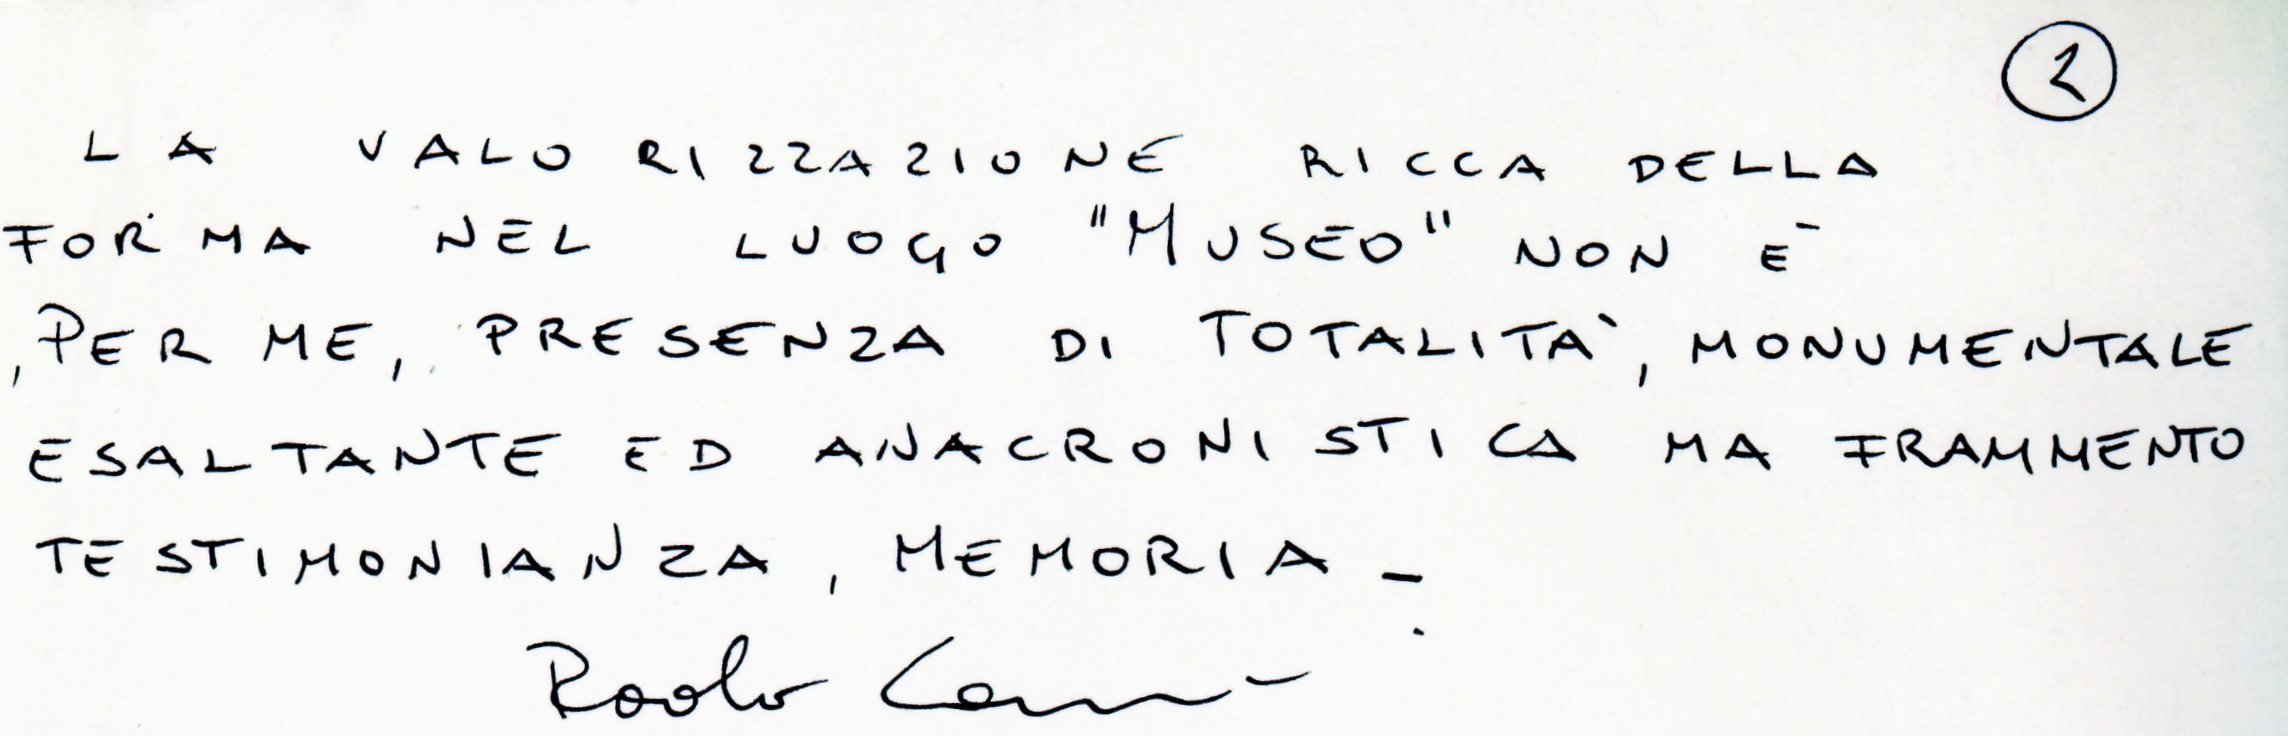 2
LA VALORIZZAZIONE RICCA DELLA
FORMA NEL LUOGO "MUSEO" NON È
, PER ME, PRESENZA DI TOTALITÀ, MONUMENTALE
ESALTANTE ED ANACRONISTICA MA FRAMMENTO
TESTIMONIANZA, MEMORIA -
Paolo